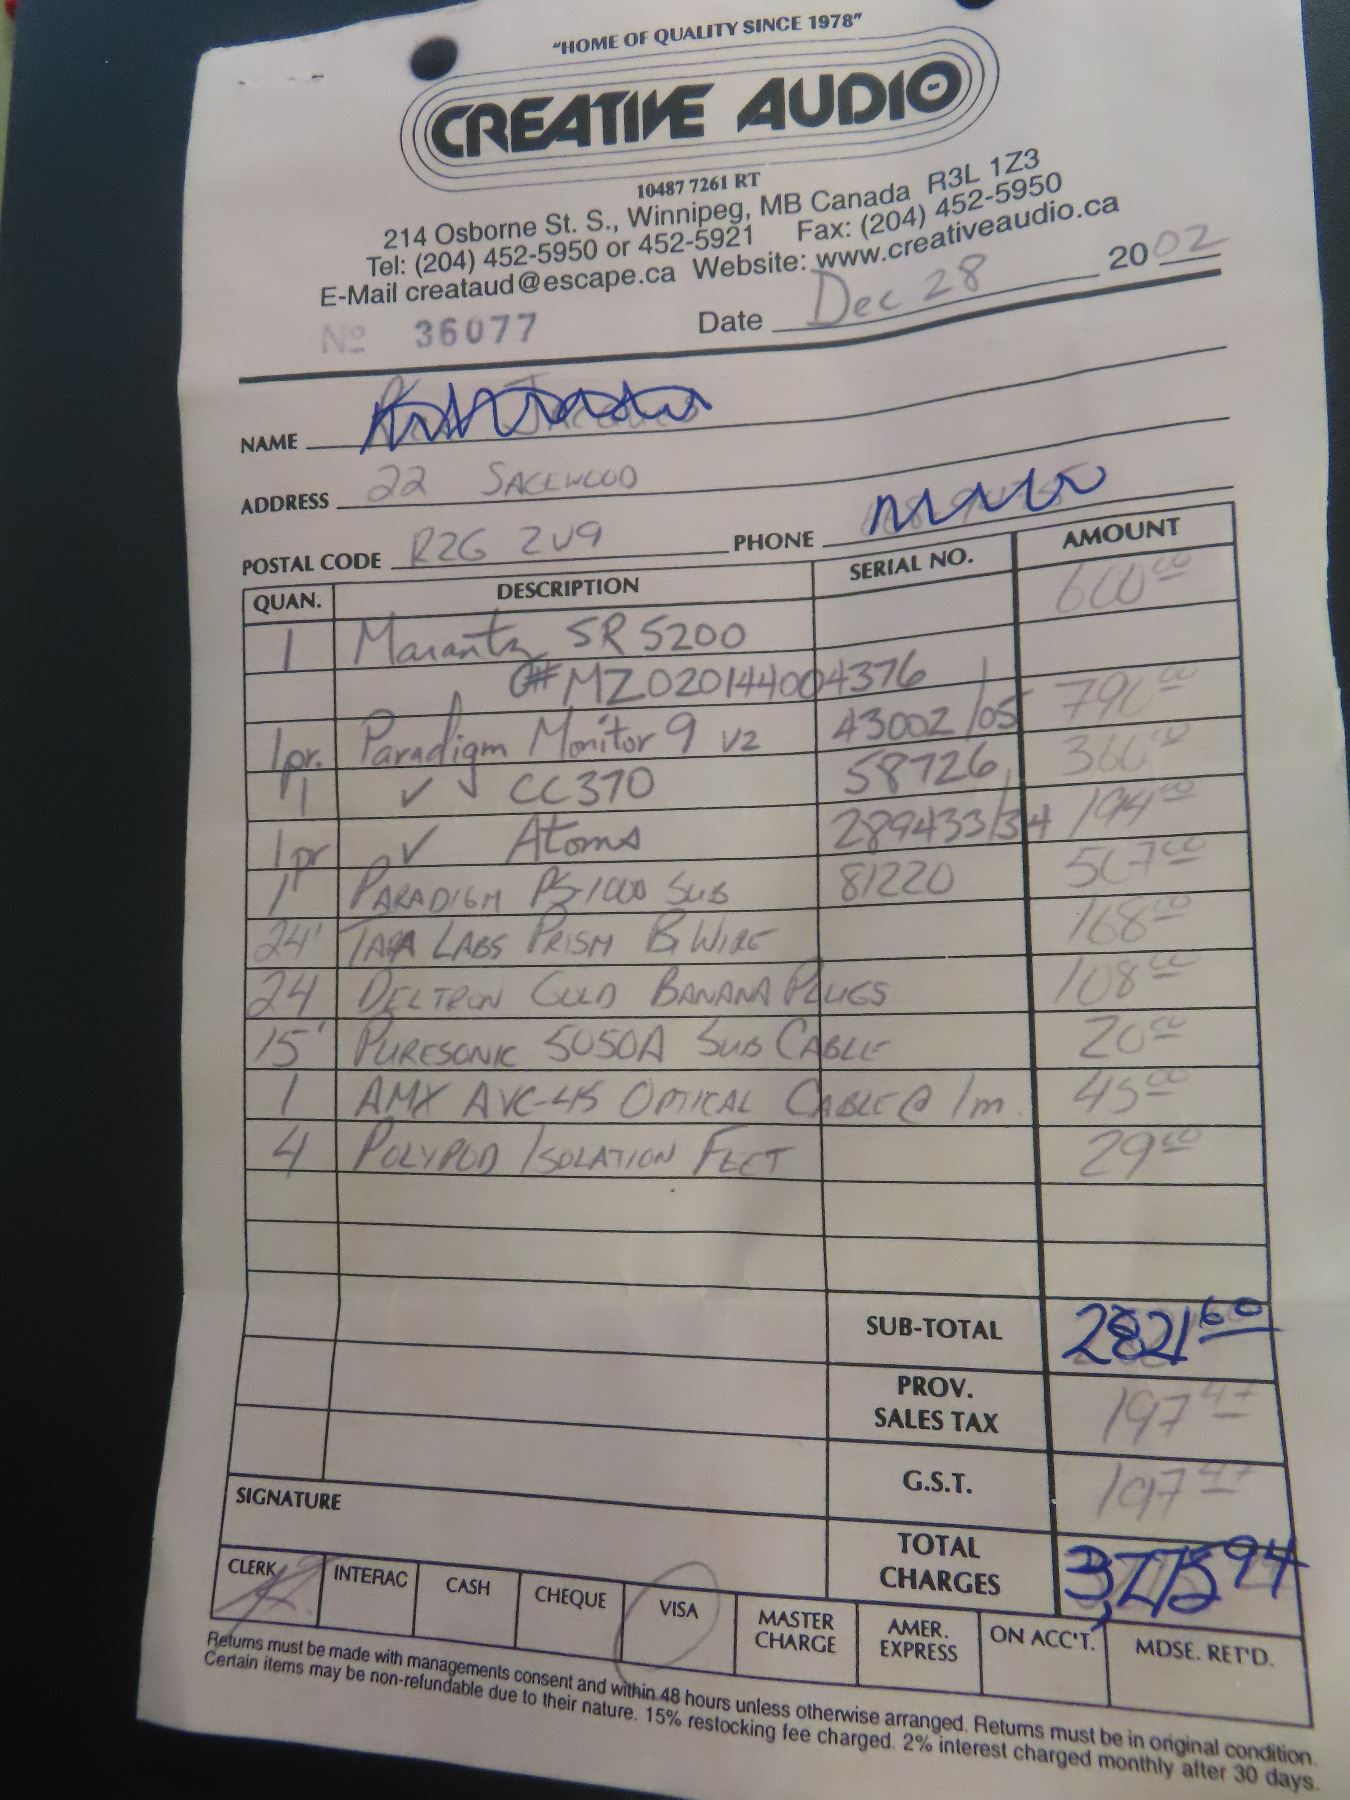 "HOME OF QUALITY SINCE 1978"
CREATIVE AUDIO
10487 7261 RT
214 Osborne St. S., Winnipeg, MB Canada R3L 1Z3
Tel: (204) 452-5950 or 452-5921 Fax: (204) 452-5950
E-Mail creataud@escape.ca Website: www.creativeaudio.ca
Nº 36077 Date Dec 28 2002
NAME
ADDRESS 22 SAGEWOOD
POSTAL CODE R2G 2V9 PHONE
QUAN. DESCRIPTION SERIAL NO. AMOUNT
1 Marantz SR5200 600 00
# MZ020144004376
1pr. Paradigm Monitor 9 V2 43002/05 790 00
1 ✓ CC370 58726 360 00
1pr ✓ Atoms 289433/34 194 00
1 PARADIGM PS-1000 SUB 81220 507 00
24' TARA LABS PRISM Bi WIRE 168 00
24 DELTRON GOLD BANANA PLUGS 108 00
15' PURESONIC 5050A SUB CABLE 20 00
1 AMX AVC-45 OPTICAL CABLE @ 1m 45 00
4 POLYPOD ISOLATION FEET 29 00
SUB-TOTAL 2821 60
PROV. SALES TAX 197 47
G.S.T. 197 47
SIGNATURE
TOTAL CHARGES 94
CLERK INTERAC CASH CHEQUE VISA MASTER CHARGE AMER. EXPRESS ON ACC'T. MDSE. RET'D.
Returns must be made with managements consent and within 48 hours unless otherwise arranged. Returns must be in original condition.
Certain items may be non-refundable due to their nature. 15% restocking fee charged. 2% interest charged monthly after 30 days.